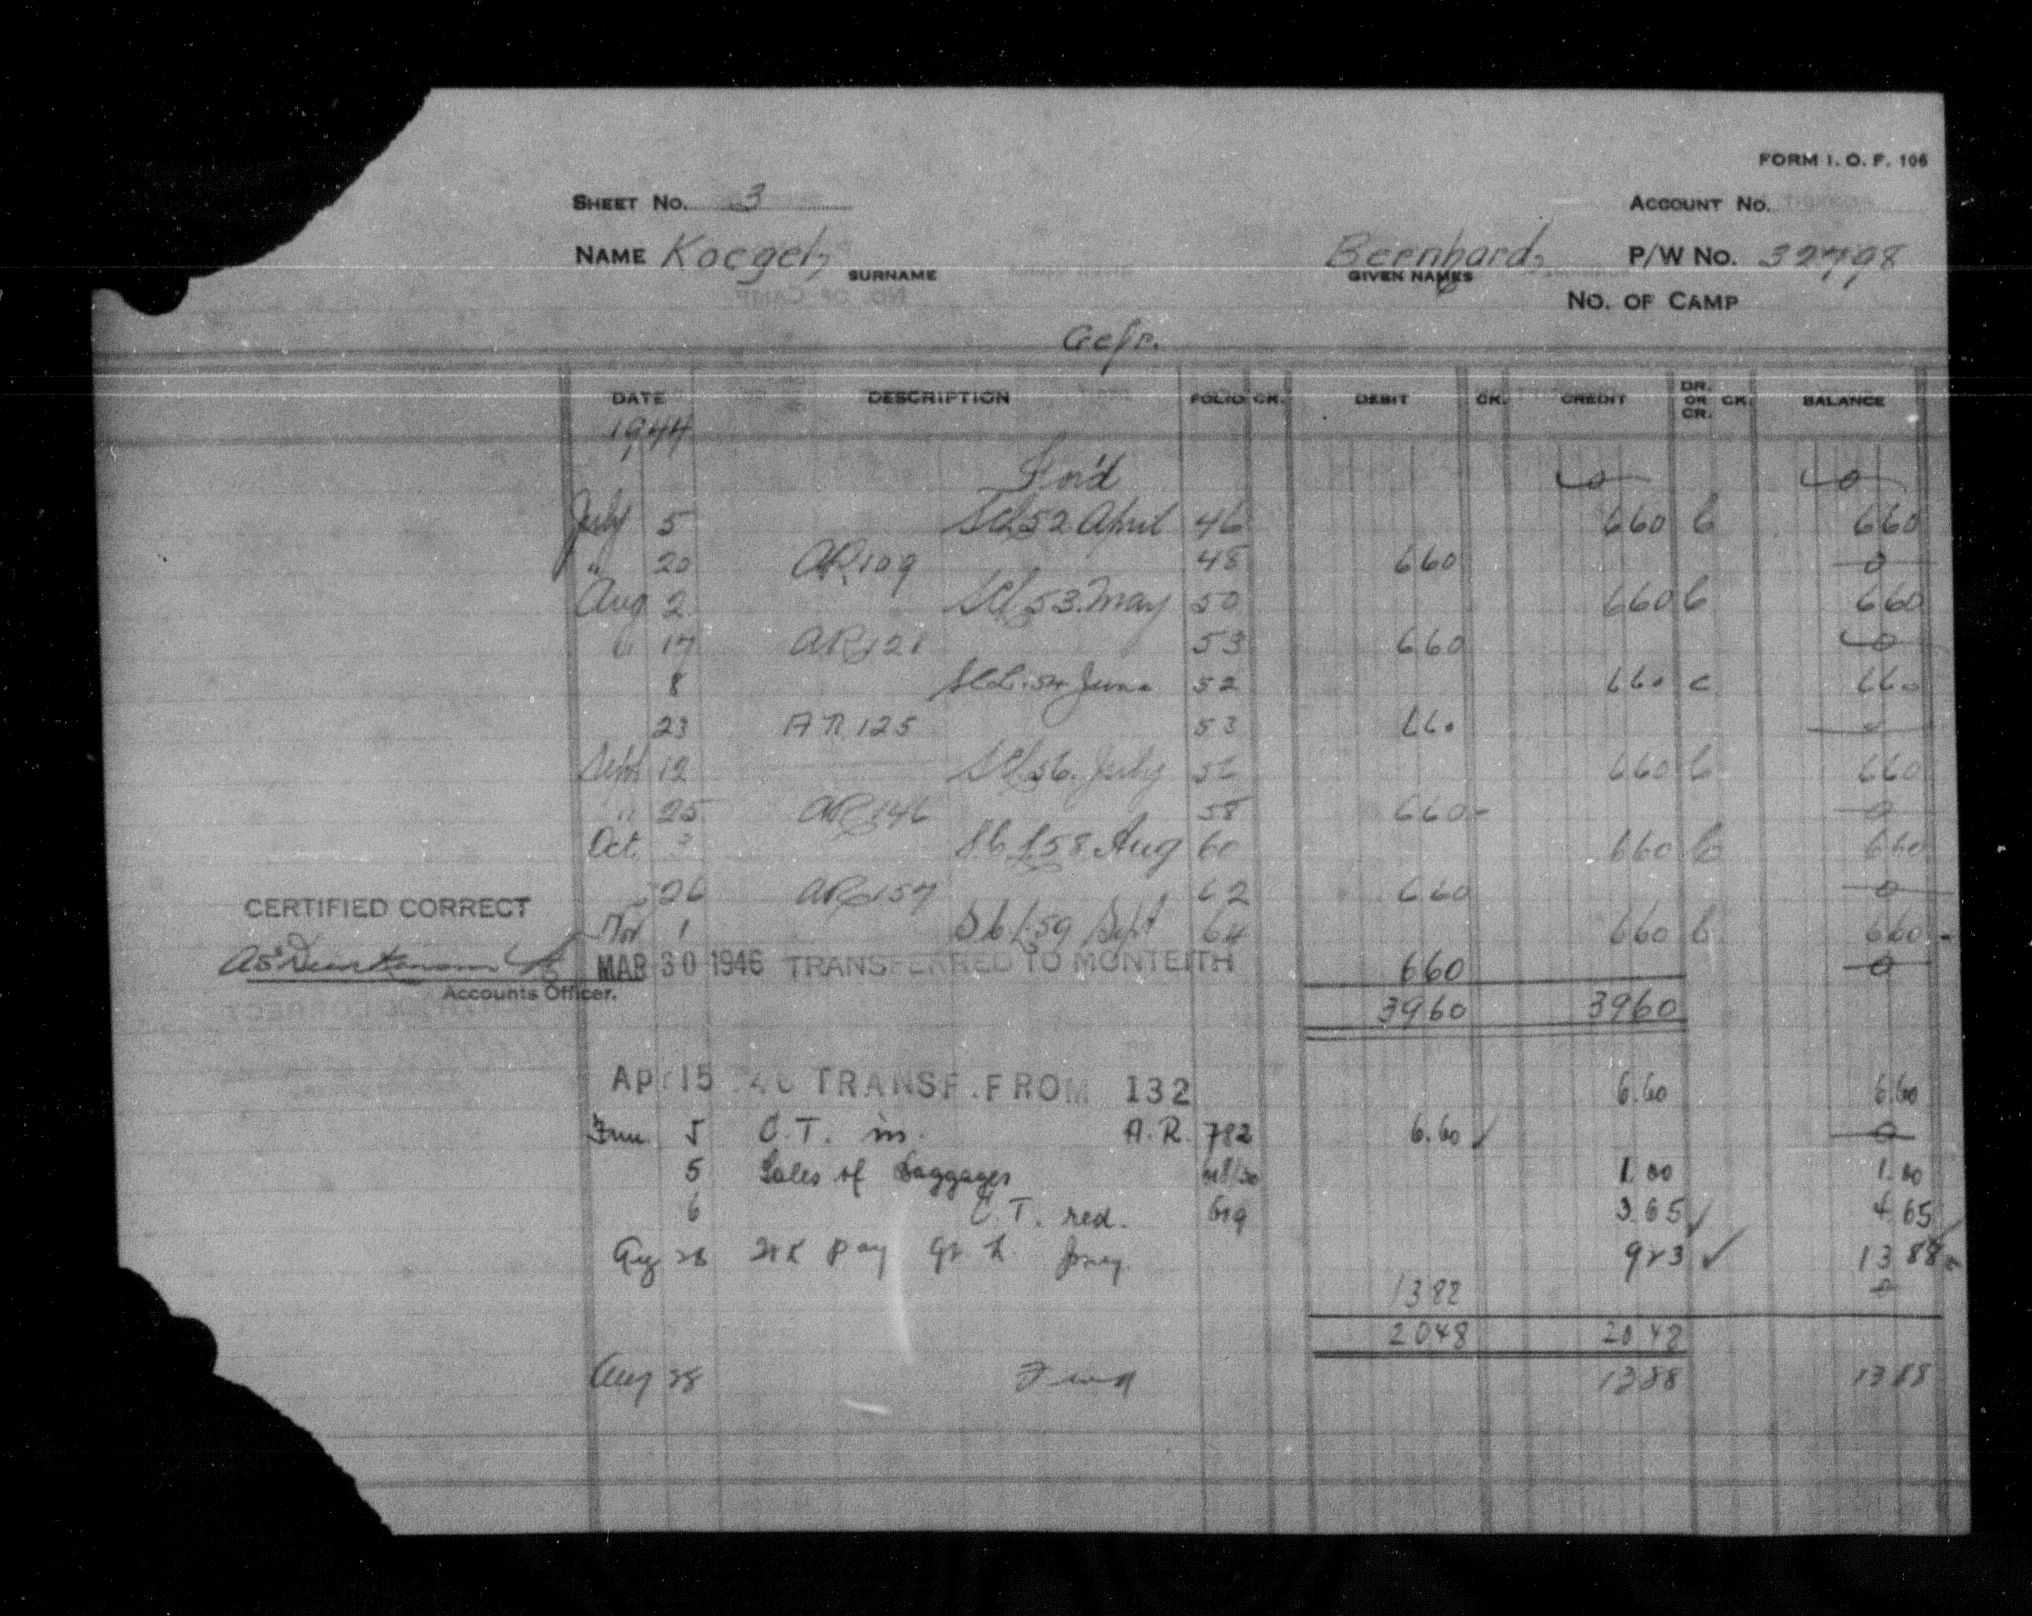 FORM I. O. F. 106
SHEET No. 3 ACCOUNT No.
NAME Koegel, Bernhard, P/W No. 32798
SURNAME GIVEN NAMES
No. OF CAMP
Gefr.
DATE DESCRIPTION FOLIO CK. DEBIT CK. CREDIT DR. OR CR. CK. BALANCE
1944
For'd 0 0
July 5 SCL 52 April 46 660 C 660
" 20 AR 109 48 660 0
Aug 2 SCL 53 May 50 660 C 660
" 17 AR 121 53 660 0
8 SCL 54 June 52 660 c 660
23 AR 125 53 660 0
Sept 12 SCL 56 July 56 660 C 660
" 25 AR 146 58 660 0
Oct. 3 SCL 58 Aug 60 660 C 660
26 AR 157 62 660 0
Nov 1 SCL 59 Sept 64 660 C 660
CERTIFIED CORRECT
MAR 30 1946 TRANSFERRED TO MONTEITH 660 0
Accounts Officer.
3960 3960
AP 15 46 TRANSF. FROM 132 6.60 6.60
June 5 C.T. in. A.R. 782 6.60 ✓ 0
5 Sales of Baggages 1.00 1.00
6 C.T. red. 619 3.65 ✓ 4.65 ✓
Aug 28 Pay 923 ✓ 13 88
1388 0
2048 2048
Aug 28 Fwd 1388 1388